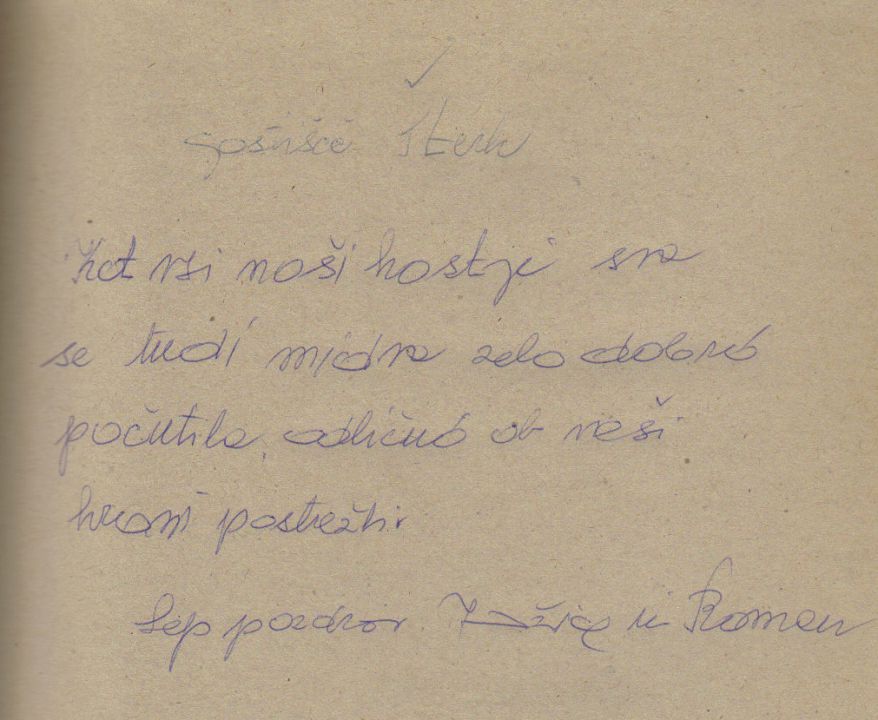 gostišče Šterk
Kot vsi naši hostje sva
se tudi midva zelo dobro
počutila, odlično ob vaši
hrani postrežbi.
Lep pozdrav in Roman